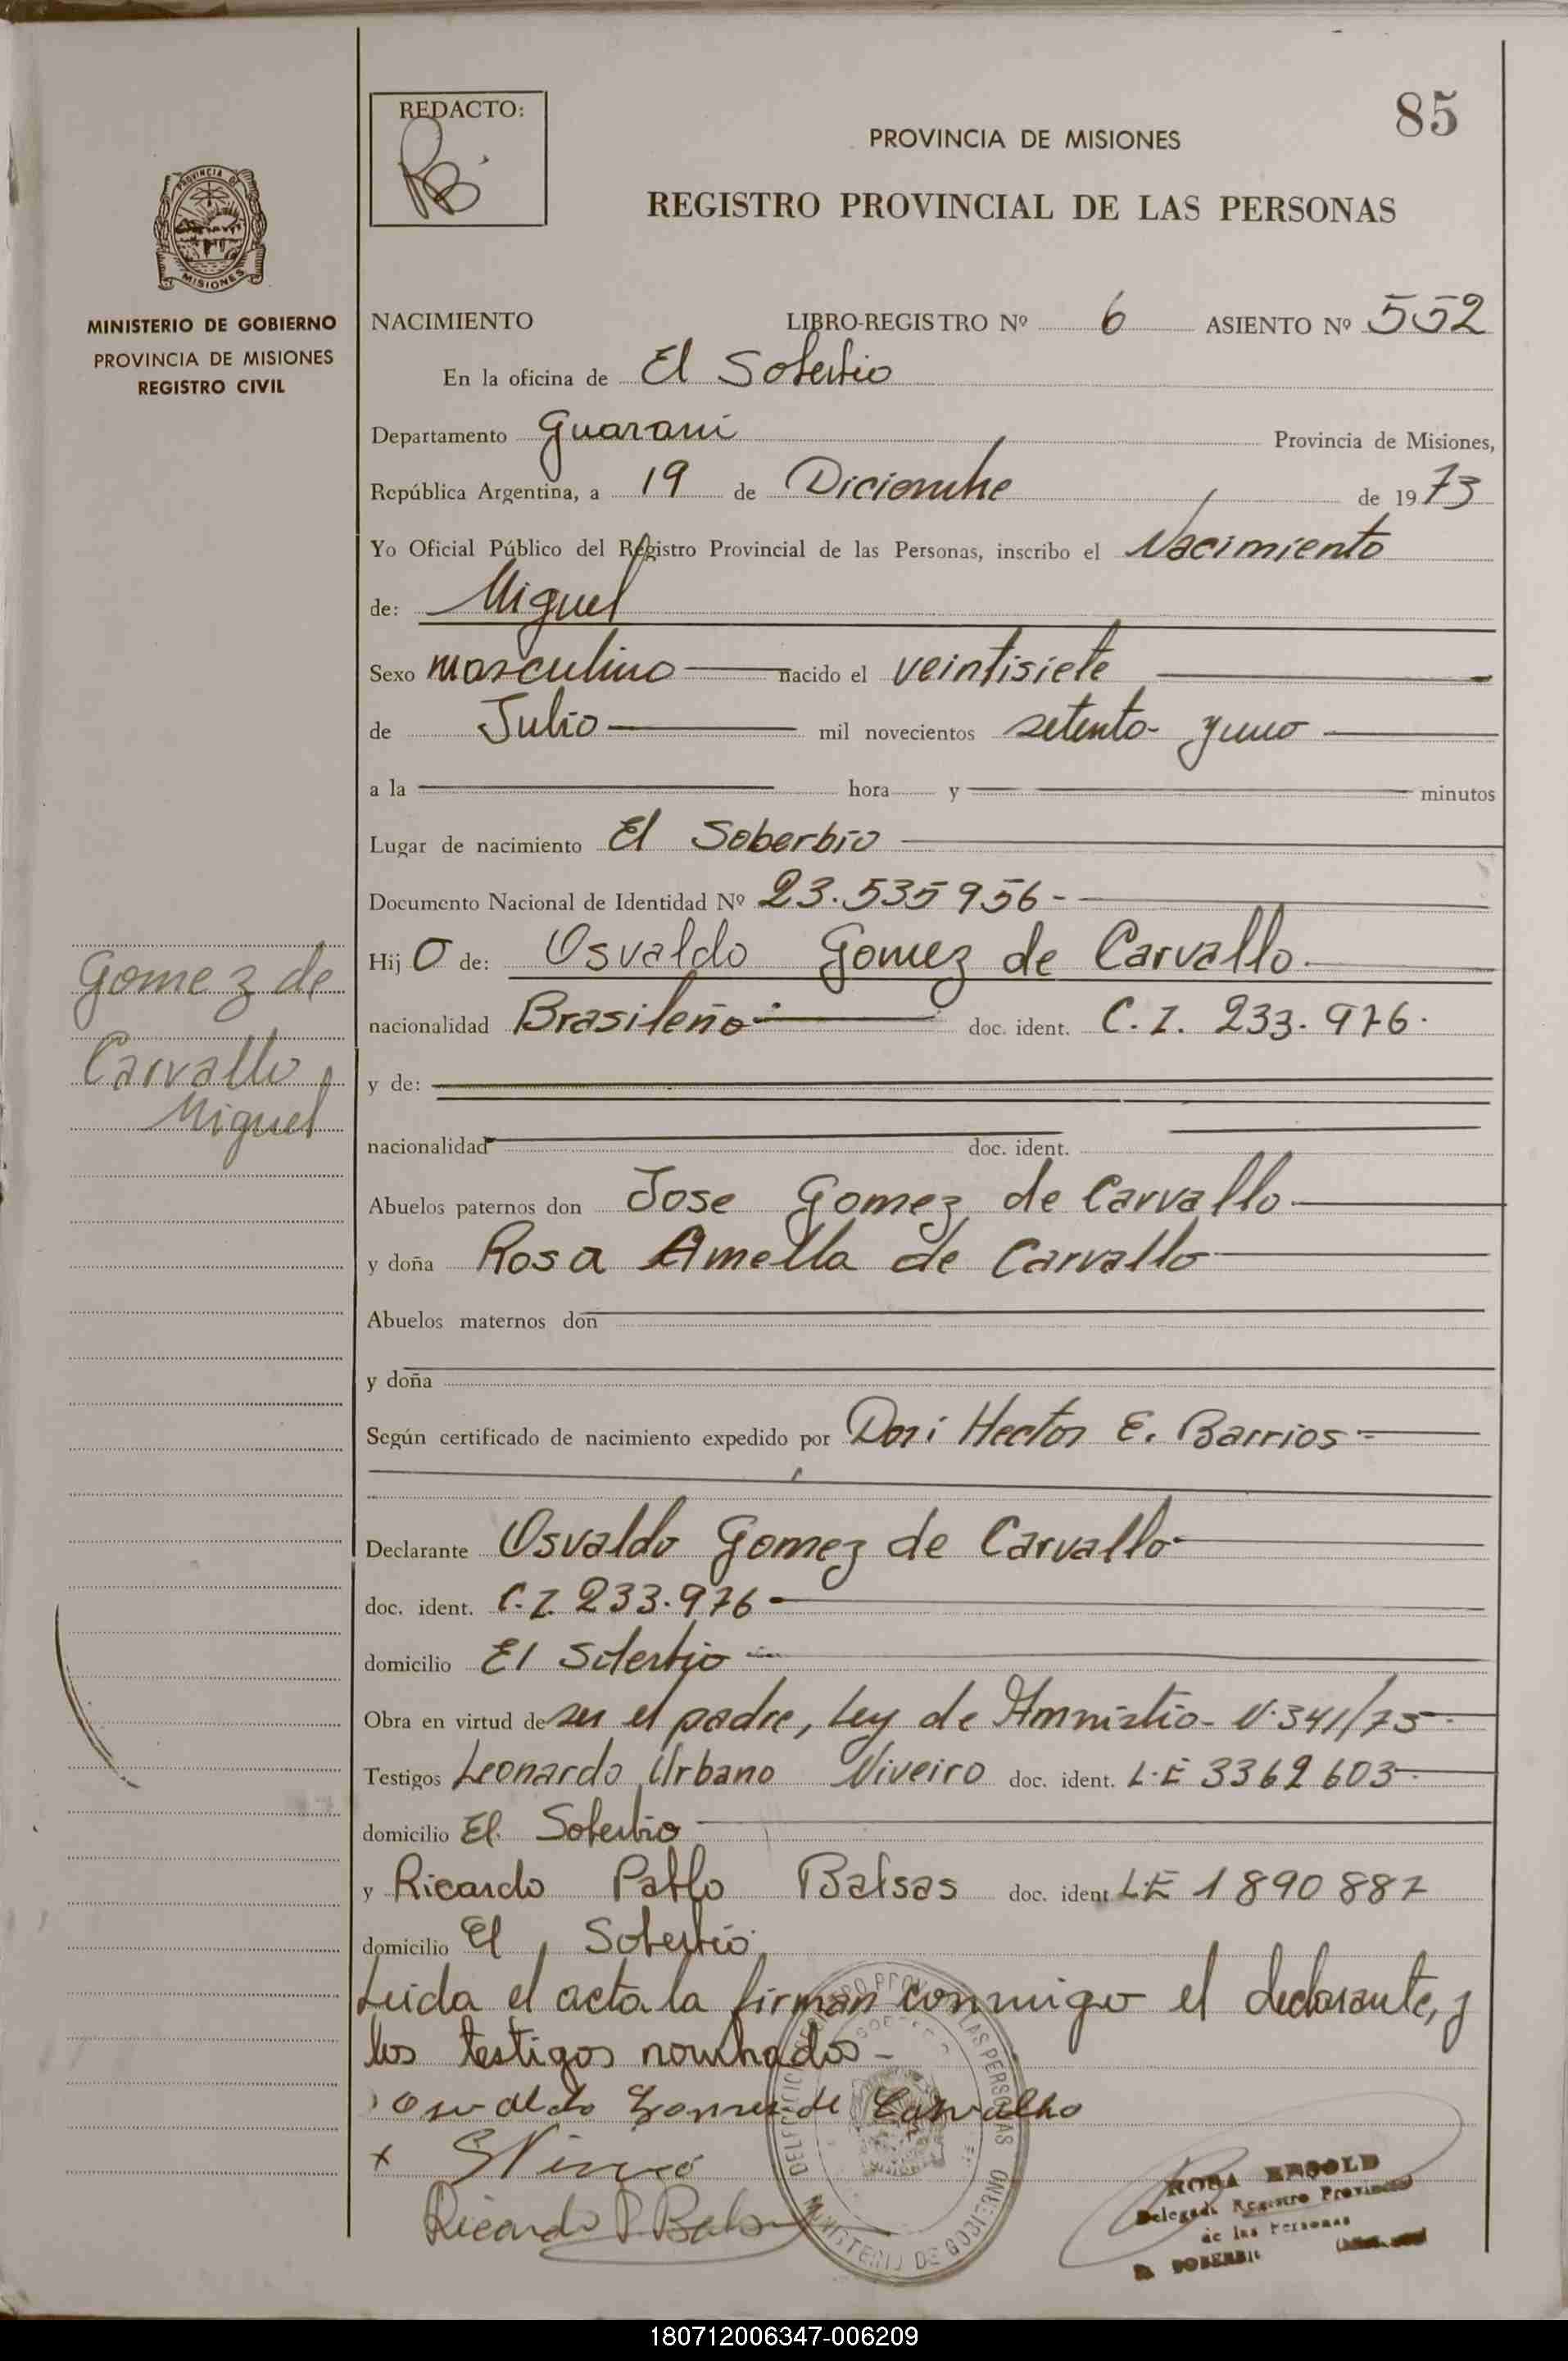 85
REDACTO:
PROVINCIA DE MISIONES
REGISTRO PROVINCIAL DE LAS PERSONAS
PROVINCIA DE
MISIONES
MINISTERIO DE GOBIERNO
PROVINCIA DE MISIONES
REGISTRO CIVIL
NACIMIENTO LIBRO-REGISTRO Nº 6 ASIENTO Nº 552
En la oficina de El Soberbio
Departamento Guarani Provincia de Misiones,
República Argentina, a 19 de Diciembre de 1973
Yo Oficial Público del Registro Provincial de las Personas, inscribo el Nacimiento
de: Miguel
Sexo masculino nacido el veintisiete
de Julio mil novecientos setenta y uno
a la hora y minutos
Lugar de nacimiento El Soberbio
Documento Nacional de Identidad Nº 23.535956-
Hij O de: Osvaldo Gomez de Carvallo.
nacionalidad Brasileño doc. ident. C.I. 233.976.
y de:
nacionalidad doc. ident.
Gomez de
Carvallo
Miguel
Abuelos paternos don Jose Gomez de Carvallo
y doña Rosa Amella de Carvallo
Abuelos maternos don
y doña
Según certificado de nacimiento expedido por Hector E. Barrios
Declarante Osvaldo Gomez de Carvallo
doc. ident. C.I. 233.976
domicilio El Soberbio
Obra en virtud de ser el padre, Ley de Amnistia N.341/73
Testigos Leonardo Urbano Niveiro doc. ident. L.E 3362603
domicilio El Soberbio
y Ricardo Pablo Balsas doc. ident L.E 1890887
domicilio El Soberbio.
Leida el acta la firman conmigo el declarante, y
los testigos nombrados-
Osvaldo Gomes de Carvalho
Ricardo P. Balsas
REGISTRO PROVINCIAL DE LAS PERSONAS
MINISTERIO DE GOBIERNO
ROSA
Delegada Registro Provincial
de las Personas
EL SOBERBIO
180712006347-006209